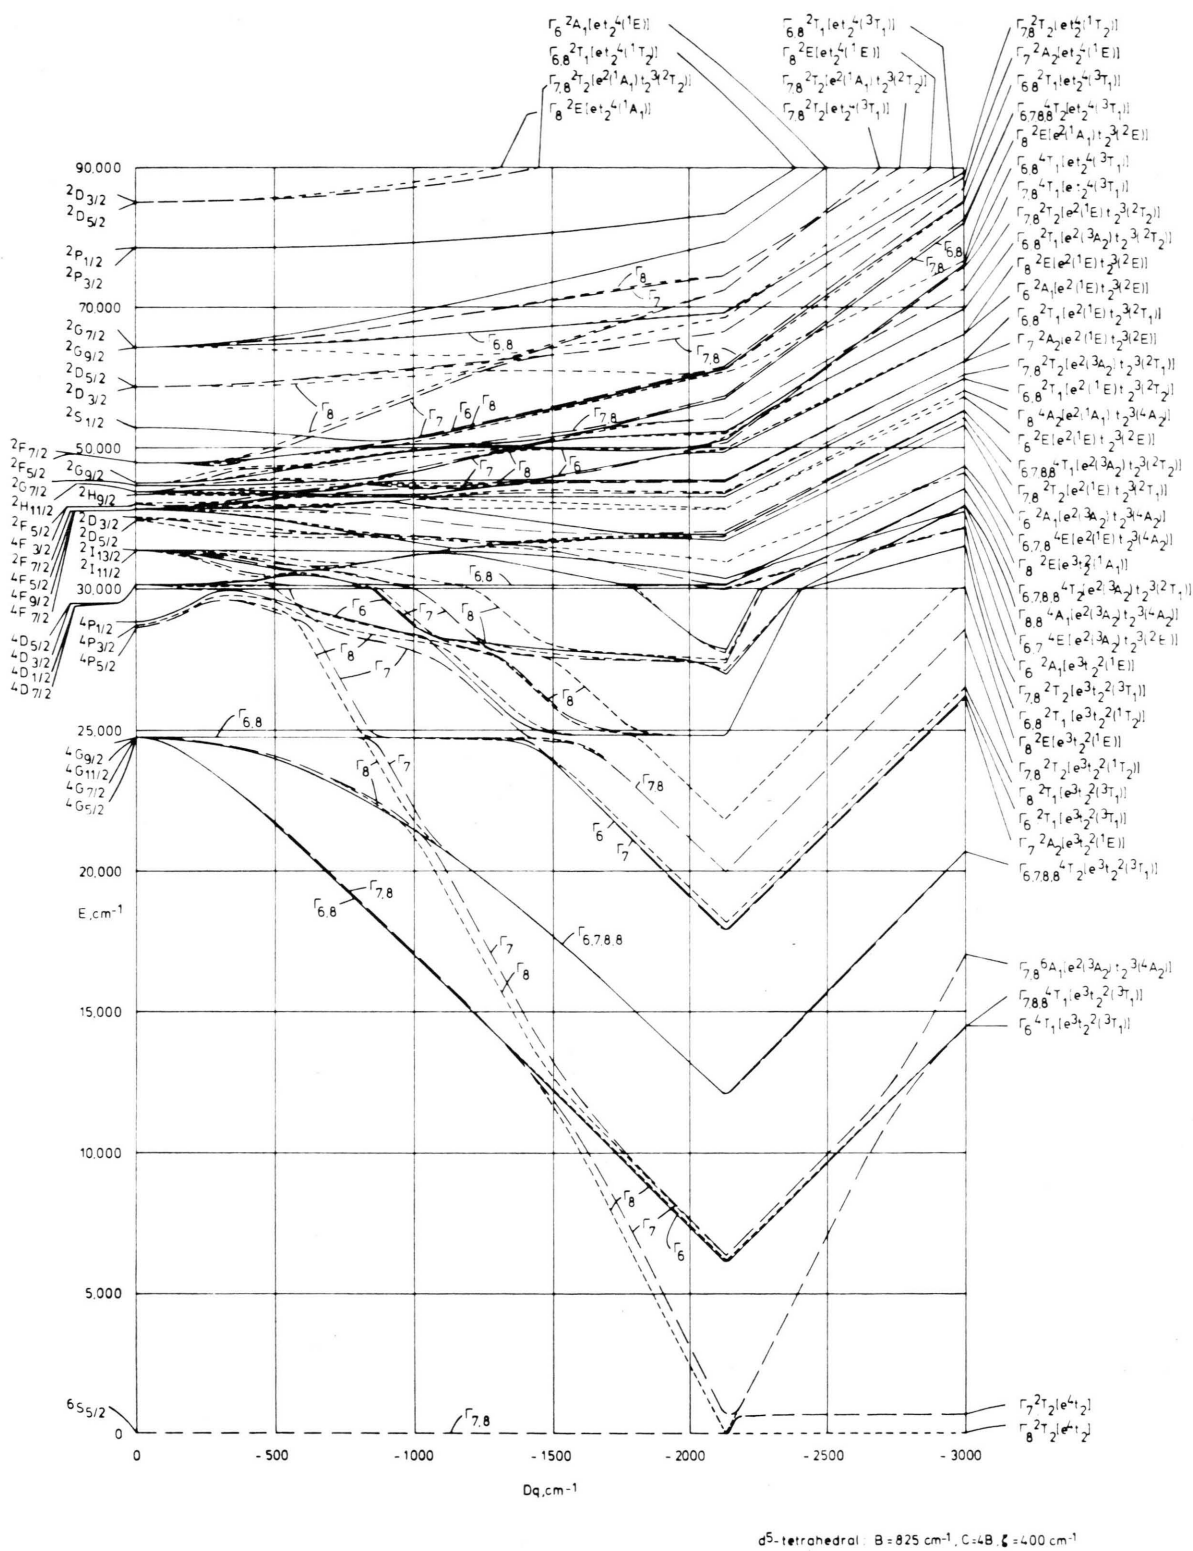 Γ6 ²A1[et2⁴(¹E)]
Γ6,8 ²T1[et2⁴(¹T2)]
Γ7,8 ²T2[e²(¹A1)t2³(²T2)]
Γ8 ²E[et2⁴(¹A1)]
Γ6,8 ²T1[et2⁴(³T1)]
Γ8 ²E[et2⁴(¹E)]
Γ7,8 ²T2[e²(¹A1)t2³(²T2)]
Γ7,8 ²T2[et2⁴(³T1)]
Γ7,8 ²T2[et2⁴(¹T2)]
Γ7 ²A2[et2⁴(¹E)]
Γ6,8 ²T1[et2⁴(³T1)]
Γ6,7,8,8 ⁴T2[et2⁴(³T1)]
Γ8 ²E[e²(¹A1)t2³(²E)]
Γ6,8 ⁴T1[et2⁴(³T1)]
Γ7,8 ⁴T1[et2⁴(³T1)]
Γ7,8 ²T2[e²(¹E)t2³(²T2)]
Γ6,8 ²T1[e²(³A2)t2³(²T2)]
Γ8 ²E[e²(¹E)t2³(²E)]
Γ6 ²A1[e²(¹E)t2³(²E)]
Γ6,8 ²T1[e²(¹E)t2³(²T1)]
Γ7 ²A2[e²(¹E)t2³(²E)]
Γ7,8 ²T2[e²(³A2)t2³(²T1)]
Γ6,8 ²T1[e²(¹E)t2³(²T2)]
Γ8 ⁴A2[e²(¹A1)t2³(⁴A2)]
Γ6 ²E[e²(¹E)t2³(²E)]
Γ6,7,8,8 ⁴T1[e²(³A2)t2³(²T2)]
Γ7,8 ²T2[e²(¹E)t2³(²T1)]
Γ6 ²A1[e²(³A2)t2³(⁴A2)]
Γ6,7,8 ⁴E[e²(¹E)t2³(⁴A2)]
Γ8 ²E[e³t2²(¹A1)]
Γ6,7,8,8 ⁴T2[e²(³A2)t2³(²T1)]
Γ8,8 ⁴A1[e²(³A2)t2³(⁴A2)]
Γ6,7 ⁴E[e²(³A2)t2³(²E)]
Γ6 ²A1[e³t2²(¹E)]
Γ7,8 ²T2[e³t2²(³T1)]
Γ6,8 ²T1[e³t2²(¹T2)]
Γ8 ²E[e³t2²(¹E)]
Γ7,8 ²T2[e³t2²(¹T2)]
Γ8 ²T1[e³t2²(³T1)]
Γ6 ²T1[e³t2²(³T1)]
Γ7 ²A2[e³t2²(¹E)]
Γ6,7,8,8 ⁴T2[e³t2²(³T1)]
Γ7,8 ⁶A1[e²(³A2)t2³(⁴A2)]
Γ7,8,8 ⁴T1[e³t2²(³T1)]
Γ6 ⁴T1[e³t2²(³T1)]
Γ7 ²T2[e⁴t2]
Γ8 ²T2[e⁴t2]
90,000
²D3/2
²D5/2
²P1/2
²P3/2
70,000
²G7/2
²G9/2
²D5/2
²D3/2
²S1/2
50,000
²F7/2
²F5/2
²G9/2
²G7/2
²H9/2
²H11/2
²F5/2
²D3/2
⁴F3/2
²D5/2
²F7/2
²I13/2
⁴F5/2
²I11/2
⁴F9/2
30,000
⁴F7/2
⁴P1/2
⁴D5/2
⁴P3/2
⁴D3/2
⁴P5/2
⁴D1/2
⁴D7/2
25,000
⁴G9/2
⁴G11/2
⁴G7/2
⁴G5/2
20,000
E,cm⁻¹
15,000
10,000
5,000
⁶S5/2
0
Γ8
Γ7
Γ6,8
Γ6,8
Γ7,8
Γ7,8
Γ8
Γ7
Γ6
Γ8
Γ7,8
Γ7
Γ8
Γ6
Γ6,8
Γ6
Γ7
Γ8
Γ8
Γ7
Γ8
Γ6,8
Γ8
Γ7
Γ7,8
Γ6
Γ7
Γ7,8
Γ6,8
Γ6,7,8,8
Γ7
Γ8
Γ8
Γ7
Γ6
Γ7,8
0
-500
-1000
-1500
-2000
-2500
-3000
Dq,cm⁻¹
d⁵-tetrahedral: B=825 cm⁻¹, C=4B, ζ=400 cm⁻¹